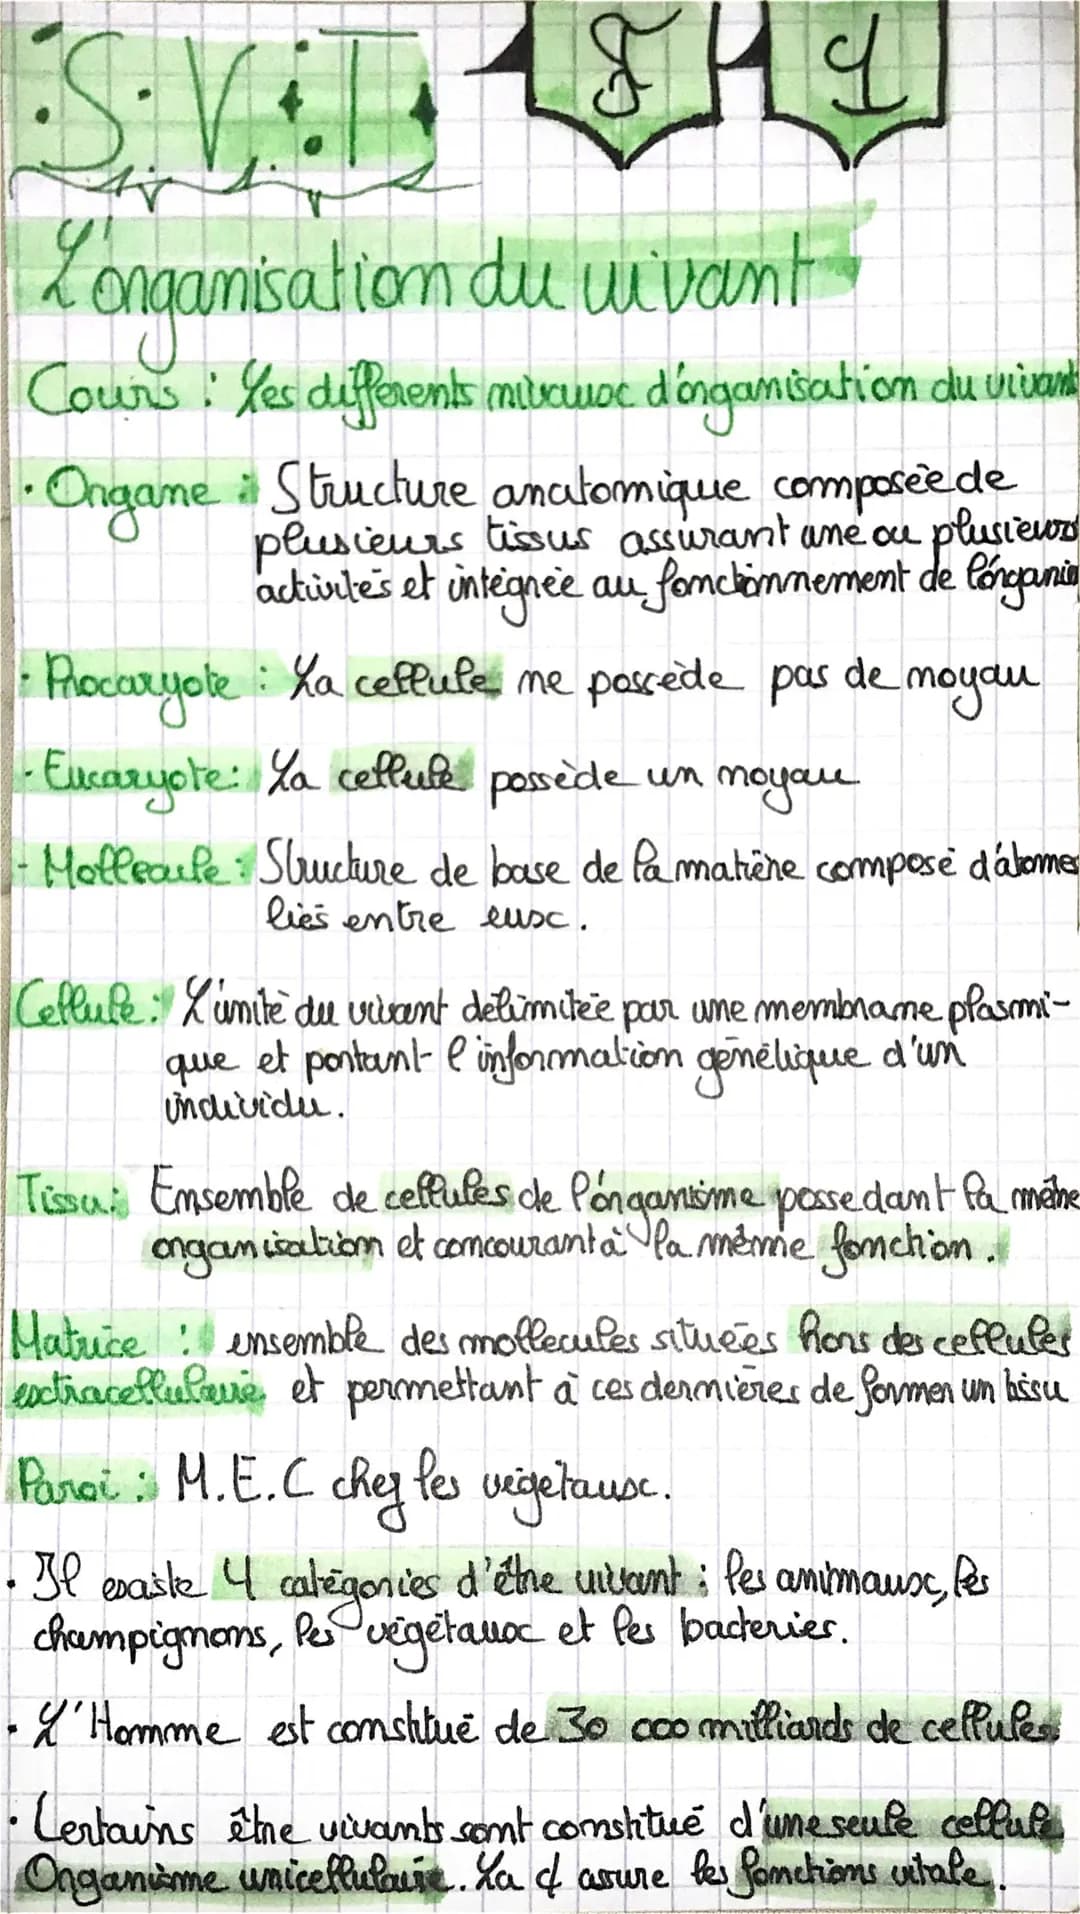 S.V.T
F 1
L'organisation du vivant
Cours : Les différents niveaux d'organisation du vivant
• Organe : Structure anatomique composée de
plusieurs tissus assurant une ou plusieurs
activités et intégrée au fonctionnement de l'organis
• Procaryote : La cellule ne possède pas de noyau
• Eucaryote : La cellule possède un noyau
- Mollecule : Structure de base de la matière composé d'atomes
liés entre eux.
Cellule : L'unité du vivant délimitée par une membrane plasmi-
que et portant l'information génétique d'un
individu.
Tissu : Ensemble de cellules de l'organisme possedant la même
organisation et concourant à la même fonction.
Matrice : ensemble des mollecules situées hors des cellules
extracellulaire et permettant à ces dernières de former un tissu
Paroi : M.E.C chez les végétaux.
• Il existe 4 catégories d'être vivant : les animaux, les
champignons, les végétaux et les bacteries.
• L'Homme est constitué de 30 000 milliards de cellules
• Certains être vivants sont constitué d'une seule cellule
Organisme unicellulaire. La ¢ assure les fonctions vitale.